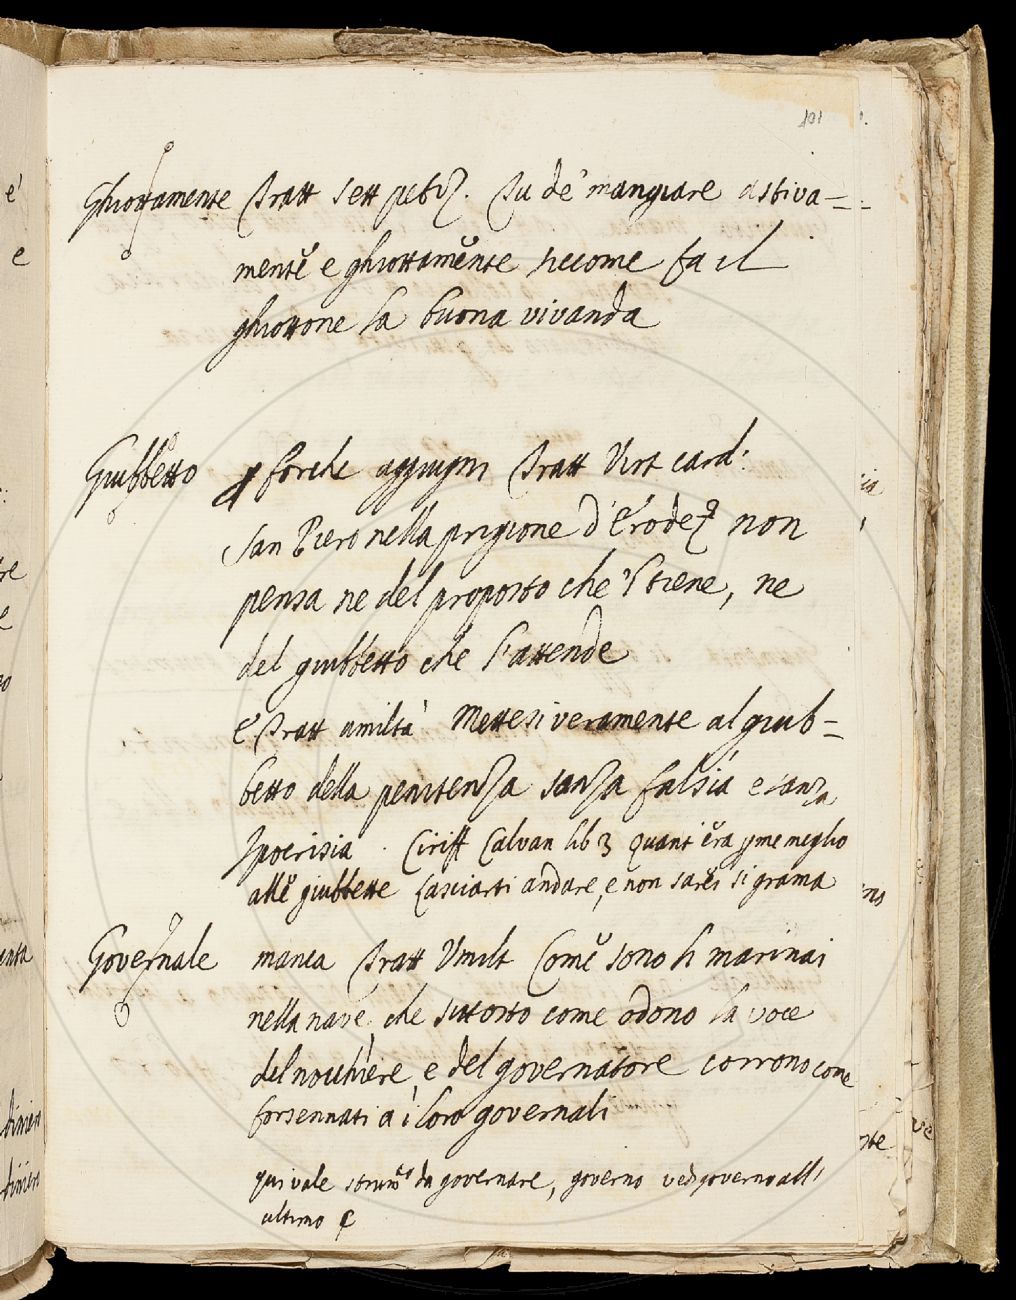 101
Ghiottamente Tratt sett petiz. Tu de' mangiare astiva=
mente e ghiottamente siccome fa il
ghiottone la buona vivanda
Giubbetto p forche aggiugni Tratt Virt card:
San Piero nella prigione d'Erode non
pensa ne del proposto che 'l tiene, ne
del giubbetto che l'attende
E Tratt umiltà Mettesi veramente al giub=
betto della penitenza sanza falsia e sanza
Ipocrisia. Ciriff Calvan lib 3 quant'era p me meglio
alle giubbette lasciarti andare, e non sarei sì grama
Governale manca Tratt Umilt Come sono li marinai
nella nave, che sittosto come odono la voce
del nocchiere, e del governatore corrono come
forsennati a i loro governali
qui vale strumto da governare, governo vedi governo all'
ultimo §